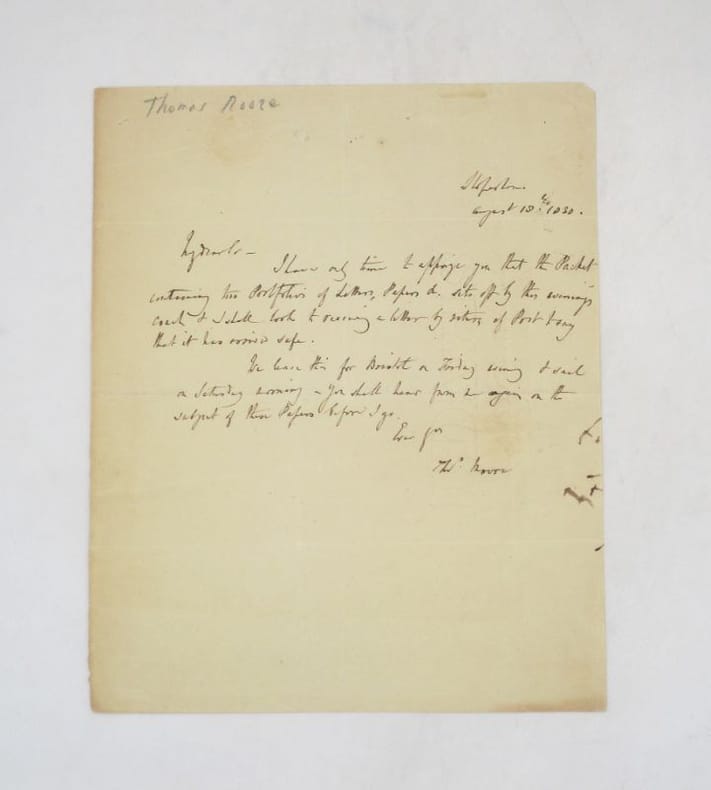 Thomas Moore
Sloperton.
August 18.th 1830.
My dear Sir –
I have only time to apprize you that the Packet
containing two Portfolios of Letters, Papers &c. sets off by this evening's
coach & I shall look to receiving a letter by return of Post to say
that it has arrived safe.
We leave this for Bristol on Friday evening & sail
on Saturday morning – You shall hear from me again on the
subject of these Papers before I go.
Ever yrs
Thos. Moore